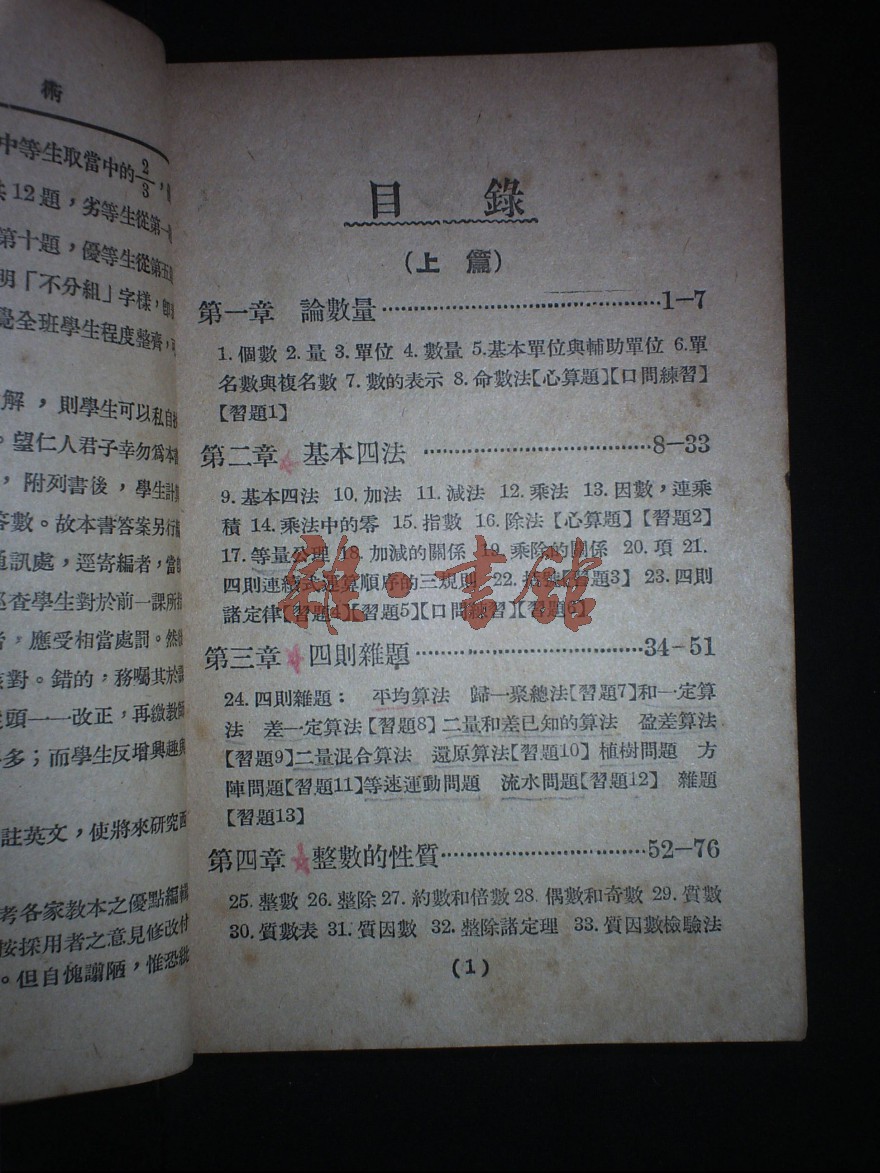 術
中等生取當中的2/3,
12題,劣等生從第一
第十題,優等生從第五
明「不分組」字樣,即
全班學生程度整齊,
解,則學生可以私自
。望仁人君子幸勿爲本
,附列書後,學生計
答數。故本書答案另行
通訊處,逕寄編者,當
查學生對於前一課所
,應受相當處罰。然
對。錯的,務囑其於
頭一一改正,再繳教
多;而學生反增興趣
註英文,使將來研究西
考各家教本之優點編輯
按採用者之意見修改付
。但自愧謭陋,惟恐
目錄
(上篇)
第一章 論數量……………………………1—7
1.個數 2.量 3.單位 4.數量 5.基本單位與輔助單位 6.單
名數與複名數 7.數的表示 8.命數法【心算題】【口問練習】
【習題1】
第二章 基本四法 ………………………8—33
9.基本四法 10.加法 11.減法 12.乘法 13.因數,連乘
積 14.乘法中的零 15.指數 16.除法【心算題】【習題2】
17.等量公理 18.加減的關係 19.乘除的關係 20.項 21.
四則連續式運算順序的三規則 22.括號【習題3】 23.四則
諸定律【習題4】【習題5】【口問練習】【習題6】
雜·書館
第三章 四則雜題………………………34—51
24.四則雜題: 平均算法 歸一聚總法【習題7】和一定算
法 差一定算法【習題8】二量和差已知的算法 盈差算法
【習題9】二量混合算法 還原算法【習題10】植樹問題 方
陣問題【習題11】等速運動問題 流水問題【習題12】 雜題
【習題13】
第四章 整數的性質……………………52—76
25.整數 26.整除 27.約數和倍數 28.偶數和奇數 29.質數
30.質數表 31.質因數 32.整除諸定理 33.質因數檢驗法
(1)